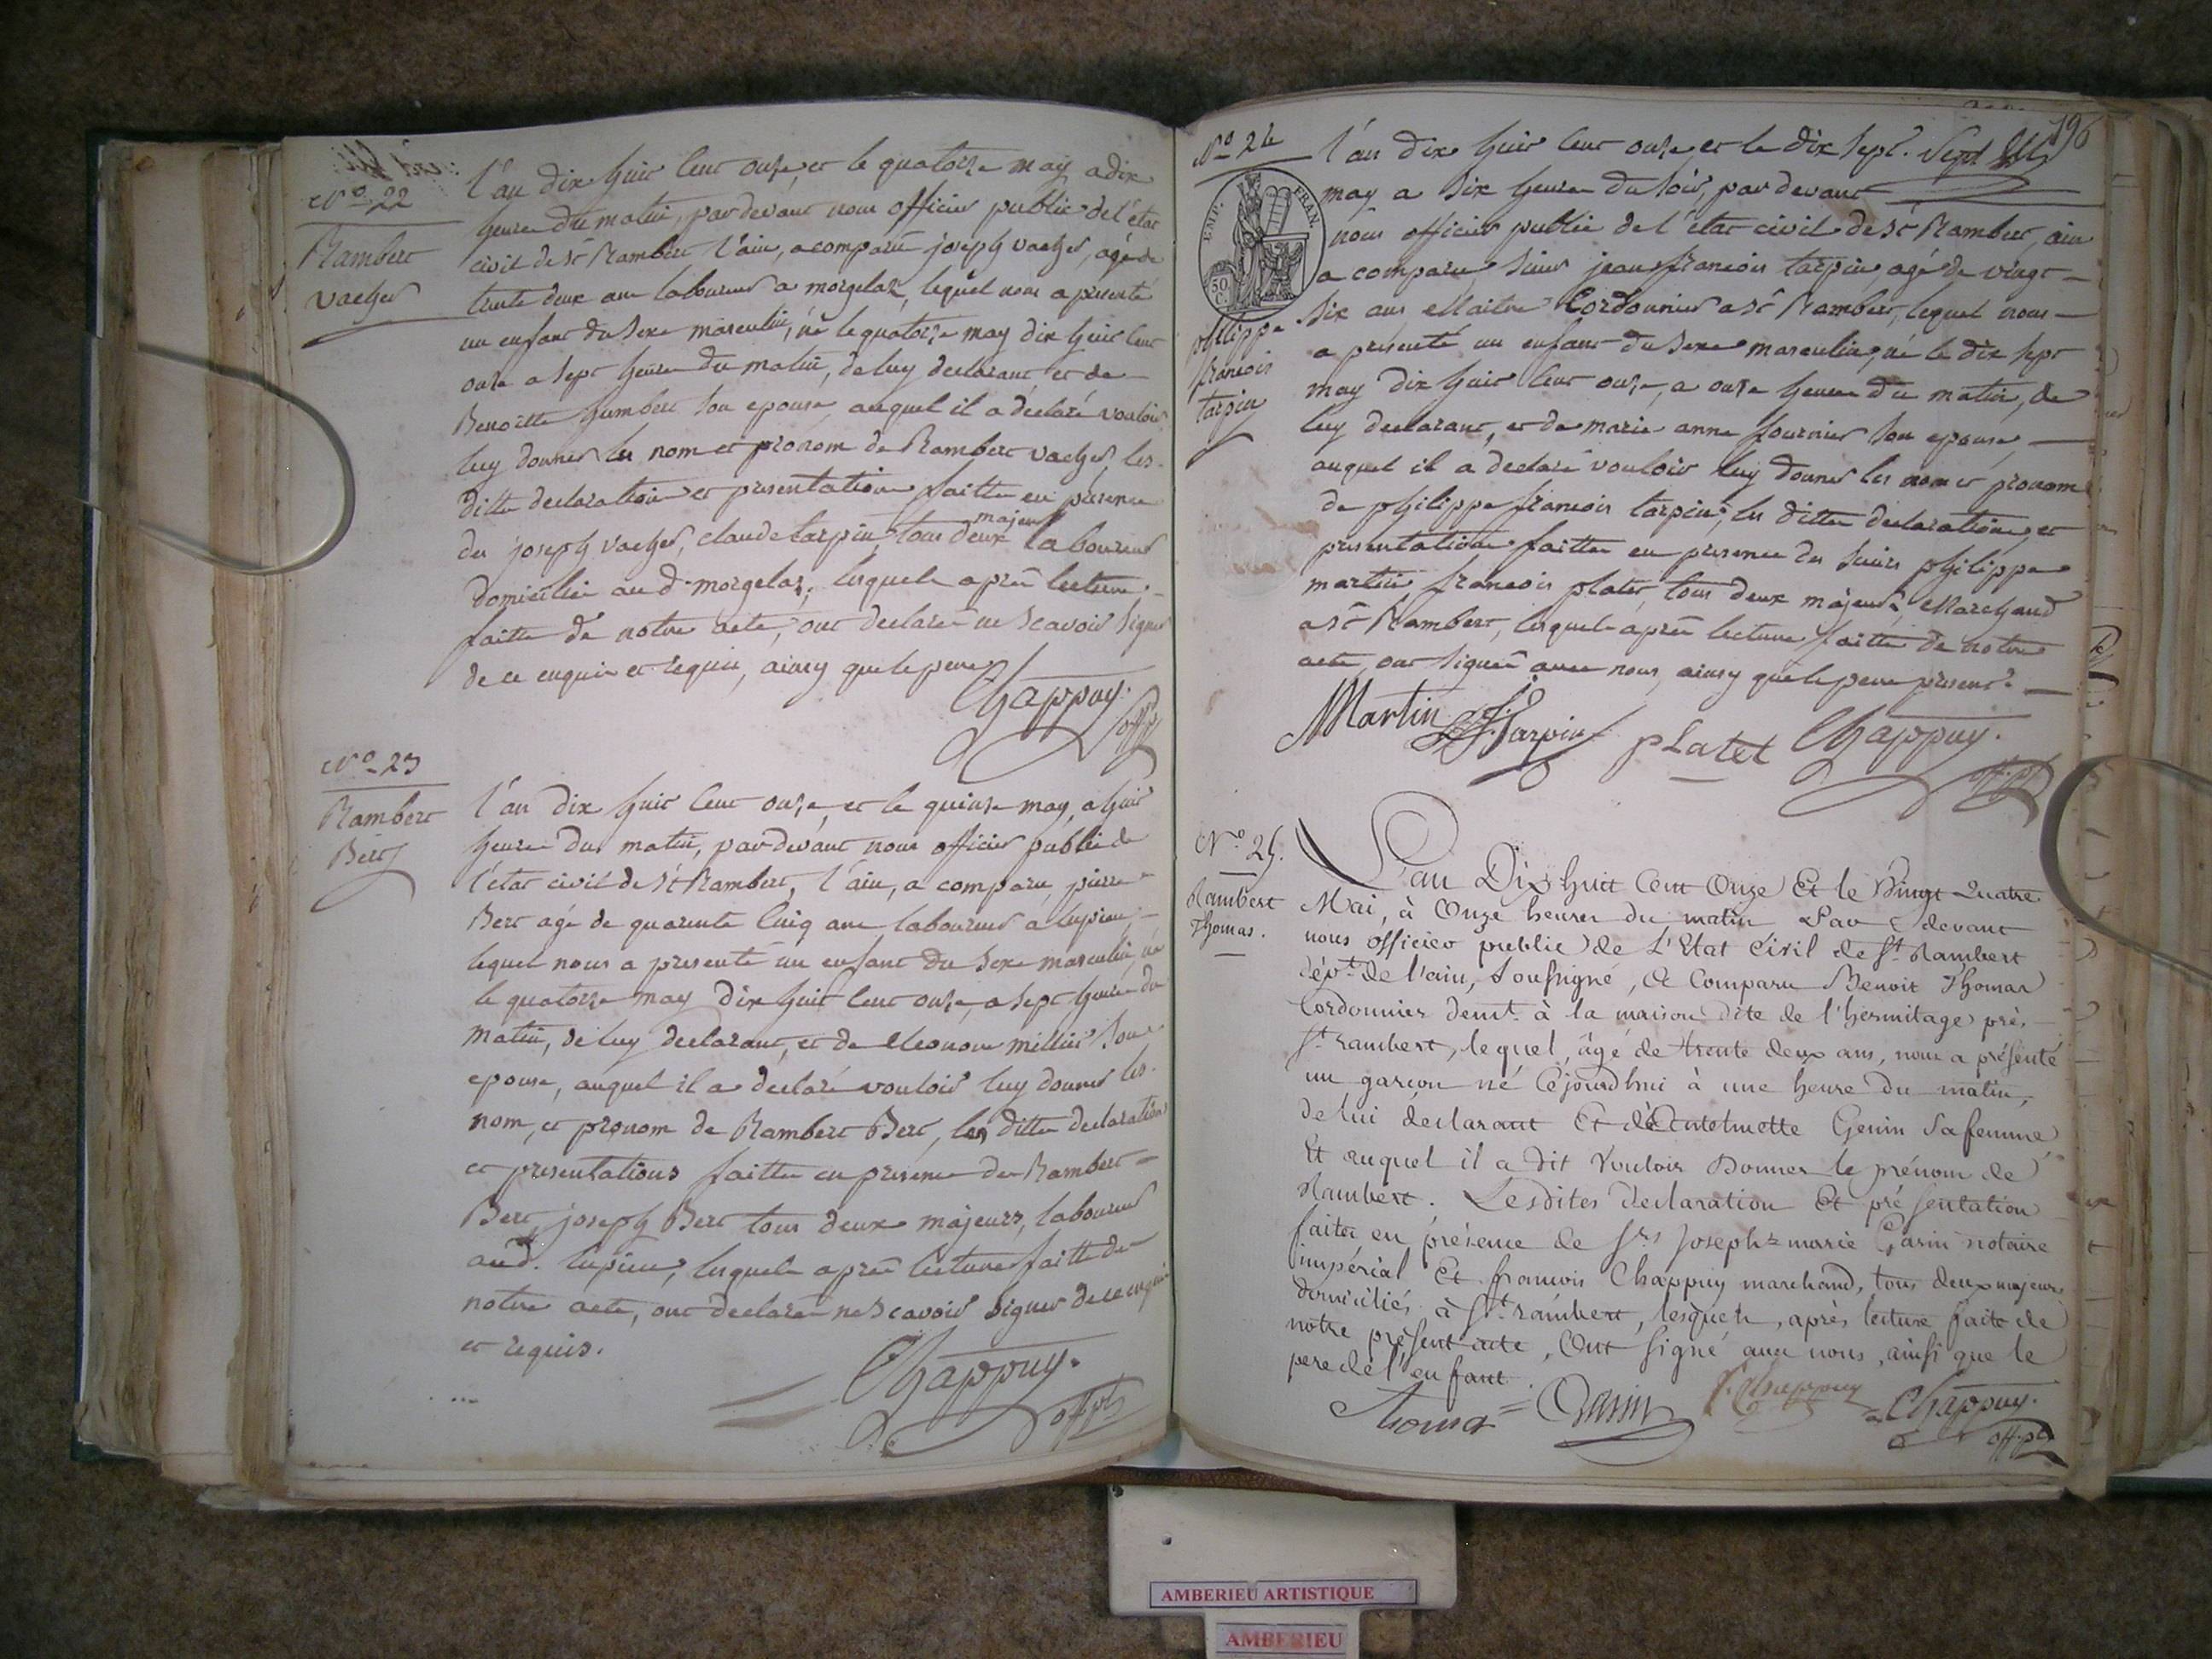 N.º 22
Rambert
vacher
l'an dix huit cent onze et le quatorze may a dix
heures du matin, pardevant nous officier public de l'état
civil de st Rambert l'ain, a comparû joseph vacher, agé de
trente deux ans laboureur a morgelaz, lequel nous a presenté
un enfant du sexe masculin, né le quatorze may dix huit cent
onze a sept heures du matin, de luy declarant, et de
Benoitte humbert son epouse, auquel il a declaré vouloir
luy donner les nom et pronom de Rambert vacher, les
ditte declaration et presentation faitte en presence
des joseph vacher, claude tarpin, tous deux majeurs laboureur
domicilié aud. morgelaz, lesquels aprés lecture
faitte de notre acte, ont declarés ne scavoir signer
de ce enquis et requis, ainsy que le pere
Chappuy.
off. p.
N.º 23
Rambert
Bert
l'an dix huit cent onze, et le quinze may, a huit
heures du matin, pardevant nous officier public de
l'état civil de st Rambert, l'ain, a comparu, pierre
Bert agé de quarante cinq ans laboureur a lupieu,
lequel nous a presenté un enfant du sexe masculin, né
le quatorze may dix huit cent onze, a sept heures du
matin, de luy declarant, et de Eleonore millin son
epouse, auquel il a declaré vouloir luy donner les
nom, et pronom de Rambert Bert, les ditte declaration
et presentations faitte en presence des Rambert
Bert, joseph Bert tous deux majeurs, laboureur
aud. lupieu, lesquels aprés lecture faitte de
notre acte, ont declarés ne scavoir signer de ce enquis
et requis.
Chappuy.
off. pb
196
N.º 24
EMP. FRAN.
50 C.
philippe
francois
tarpin
l'an dix huit cent onze, et le dix sept.
may a six heures du soir, par devant
nous officier public de l'état civil de st Rambert, ain
a comparu, sieur jean francois tarpin, agé de vingt
six ans Maitre Cordonnier a st Rambert, lequel nous
a presenté un enfant du sexe masculin, né le dix sept
may dix huit cent onze, a onze heures du matin, de
luy declarant, et de marie anne fournier son epouse,
auquel il a declaré vouloir luy donner les nom et pronom
de philippe francois tarpin, les ditte declaration et
presentation faitte en presence des sieurs philippe
martin francois platet, tous deux majeurs, Marchand
a st Rambert, lesquels aprés lecture faitte de notre
acte, ont signés avec nous, ainsy que le pere present.
Martin J. f. Tarpin platet Chappuy.
off. pb
N.º 25.
Rambert
Thomas.
L'an Dix huit Cent Onze Et le Vingt Quatre
Mai, à Onze heures du matin Par devant
nous officier public de L'Etat Civil de St. Rambert
dép.t de l'ain, soussigné, a Comparu Benoit Thomas
Cordonnier demt. à la maison dite de l'hermitage près
St. rambert, lequel, âgé de trente deux ans, nous a présenté
un garcon né cejourdhui à une heure du matin,
de lui déclarant Et de Antelmette Genin sa femme
Et auquel il a dit vouloir Donner le prénom de
Rambert. Lesdites declaration Et présentation
faites en présence de Srs Joseph=marie Garin notaire
impérial Et francois Chappuy marchand, tous deux majeurs
domiciliés à St. rambert, lesquels, après lecture faite de
notre présent acte, Ont signé avec nous, ainsi que le
pere de l'enfant.
thoma = Garin f. Chappuy Chappuy.
off. pb
AMBERIEU ARTISTIQUE
AMBERIEU